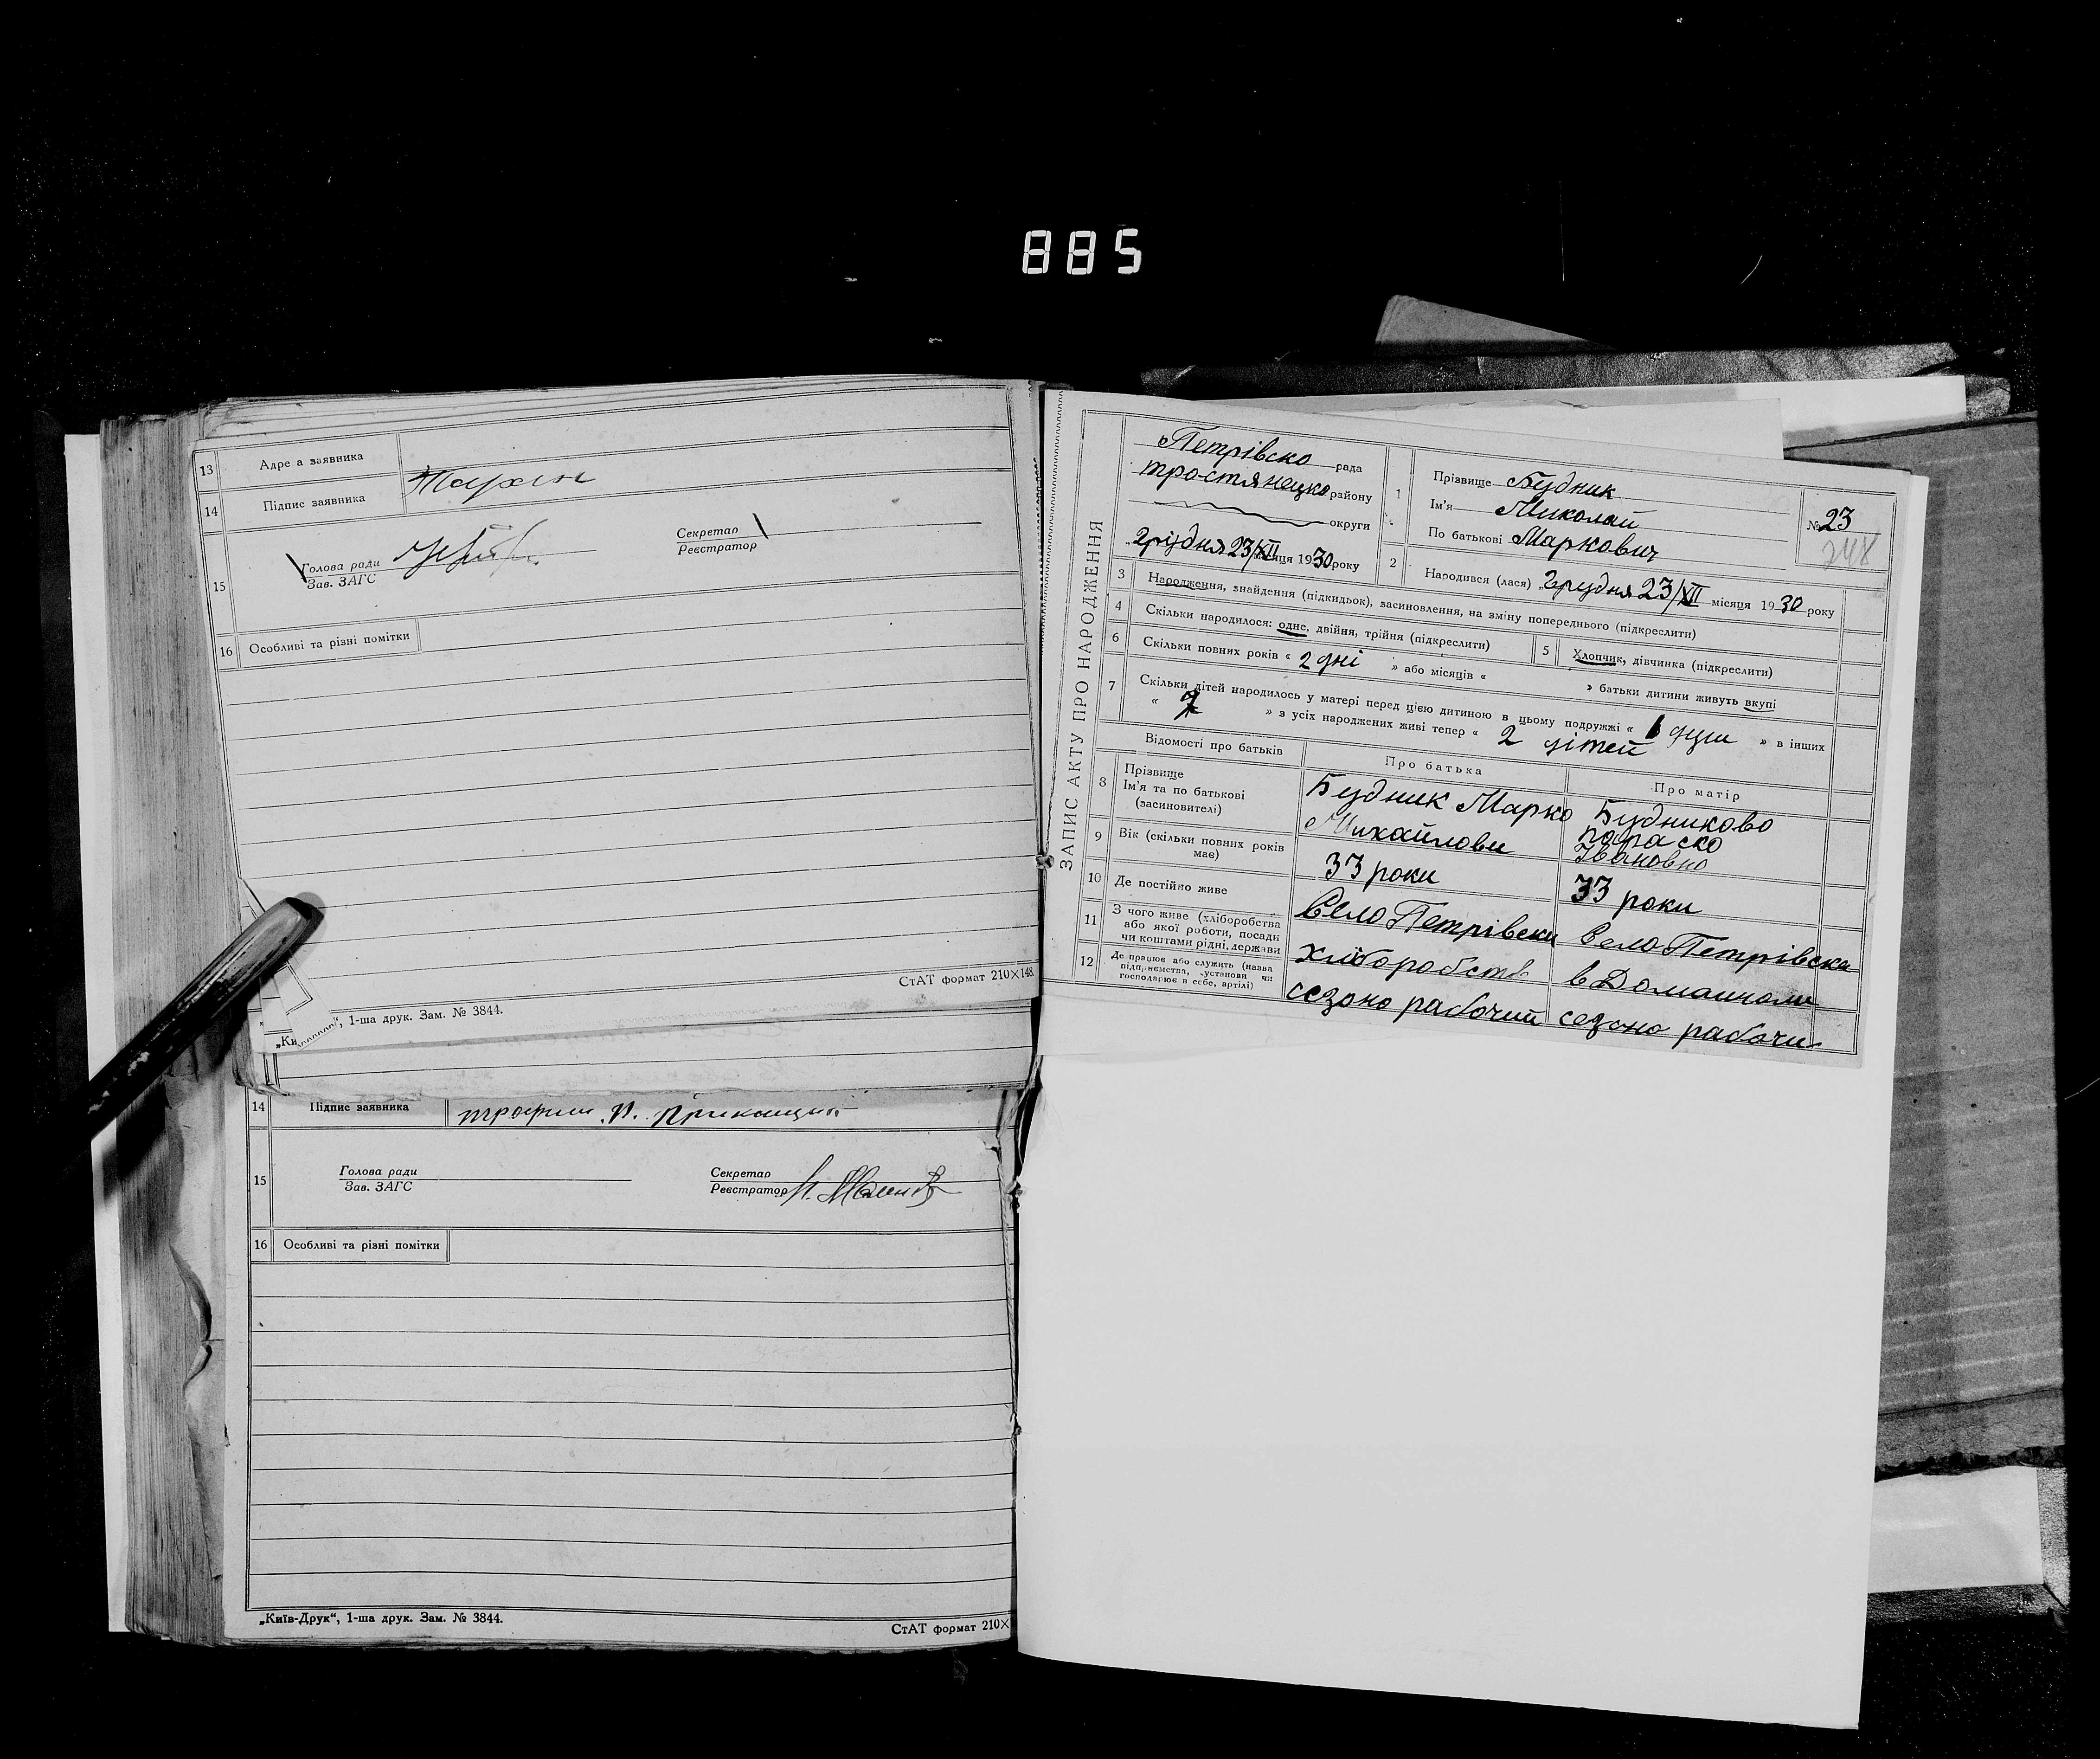 885
13 Адре а заявника
14 Підпис заявника
15 Голова ради
Зав. ЗАГС
Секретар
Реєстратор
16 Особливі та різні помітки
СтАТ формат 210×148.
“, 1-ша друк. Зам. № 3844.
„Ки
14 Підпис заявника
15 Голова ради
Зав. ЗАГС
Секретар
Реєстратор
16 Особливі та різні помітки
„Київ-Друк“, 1-ша друк. Зам. № 3844.
СтАТ формат 210×
ЗАПИС АКТУ ПРО НАРОДЖЕННЯ
Петрівско рада
тростянецко району
округи
„грудня 23/XII місяця 1930 року
1 Прізвище Будник
Ім'я Миколай
По батькові Маркович
№ 23
248
2 Народився (лася) „грудня 23/XII місяця 1930 року
3 Народження, знайдення (підкидьок), засиновлення, на зміну попереднього (підкреслити)
4 Скільки народилося: одне, двійня, трійня (підкреслити)
5 Хлопчик, дівчинка (підкреслити)
6 Скільки повних років « 2 дні » або місяців « » батьки дитини живуть вкупі
7 Скільки дітей народилось у матері перед цією дитиною в цьому подружжі « » в інших
« » з усіх народжених живі тепер « 2 дітей
Відомості про батьків
Про батька
Про матір
8 Прізвище
Ім'я та по батькові
(засиновителі)
Будник Марко
Михайлови
Будниково
параско
Івановно
9 Вік (скільки повних років
має)
33 роки
33 роки
10 Де постійно живе
Село Петрівски
Село Петрівска
11 З чого живе (хліборобства
або якої роботи, посади
чи коштами рідні, держави
хліборобств
в Домашному
12 Де працює або служить (назва
підприємства, установи чи
господарює в себе, артілі)
сезоно рабочий
сезоно рабочи